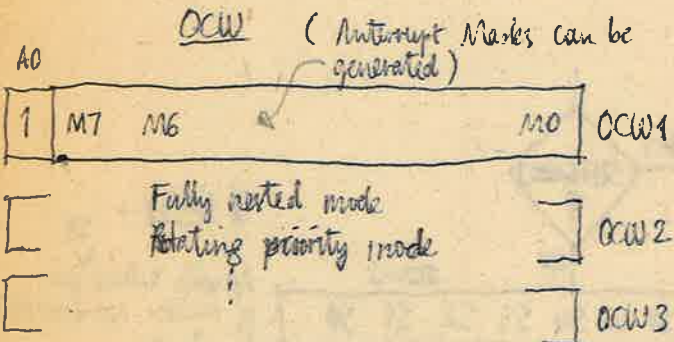 OCW ( Interrupt Masks can be
generated )
A0
1 M7 M6 M0 OCW1
Fully nested mode
Rotating priority mode OCW2
⋮
OCW3